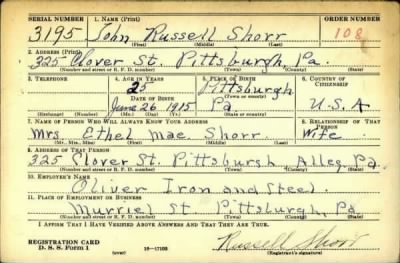 SERIAL NUMBER 1. NAME (Print) ORDER NUMBER
3195 John Russell Shorr 108
(First) (Middle) (Last)
2. ADDRESS (Print)
325 Clover St. Pittsburgh, Pa.
(Number and street or R. F. D. number) (Town) (County) (State)
3. TELEPHONE 4. AGE IN YEARS 5. PLACE OF BIRTH 6. COUNTRY OF CITIZENSHIP
25 Pittsburgh
DATE OF BIRTH (Town or county)
June 26 1915 Pa. U.S.A
(Exchange) (Number) (Mo.) (Day) (Yr.) (State or country)
7. NAME OF PERSON WHO WILL ALWAYS KNOW YOUR ADDRESS 8. RELATIONSHIP OF THAT PERSON
Mrs Ethel Mae Shorr Wife
(Mr., Mrs., Miss) (First) (Middle) (Last)
9. ADDRESS OF THAT PERSON
325 Clover St. Pittsburgh Alleg. Pa.
(Number and street or R. F. D. number) (Town) (County) (State)
10. EMPLOYER'S NAME
Oliver Iron and Steel
11. PLACE OF EMPLOYMENT OR BUSINESS
Murriel St. Pittsburgh, Pa.
(Number and street or R. F. D. number) (Town) (County) (State)
I AFFIRM THAT I HAVE VERIFIED ABOVE ANSWERS AND THAT THEY ARE TRUE.
REGISTRATION CARD
D. S. S. Form 1 16—17105 Russell Shorr
(over) (Registrant's signature)